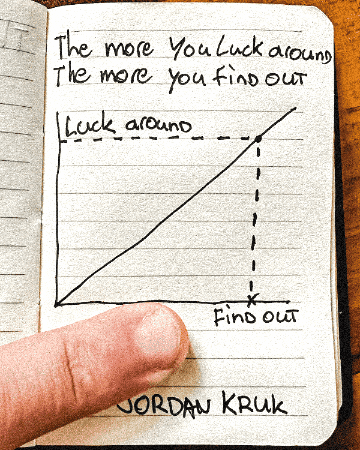 The more You Luck around
The more you find out
Luck around
Find out
JORDAN KRUK